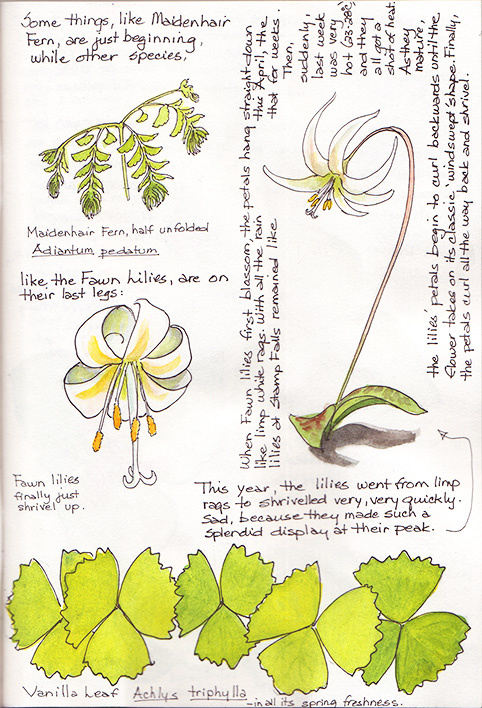 Some things, like Maidenhair
Fern, are just beginning,
while other species,
Maidenhair Fern, half unfolded
Adiantum pedatum
like the Fawn Lilies, are on
their last legs:
Fawn lilies
finally just
shrivel up.
When Fawn lilies first blossom, the petals hang straight down
like limp white rags. With all the rain this April, the
lilies at Stamp Falls remained like that for weeks.
Then,
suddenly,
last week
was very
hot (23-28C)
and they
all got a
shot of heat.
As they
mature,
the lilies' petals begin to curl backwards until the
flower takes on its classic windswept shape. Finally,
the petals curl all the way back and shrivel.
This year, the lilies went from limp
rags to shrivelled very, very quickly.
Sad, because they made such a
splendid display at their peak.
Vanilla Leaf Achlys triphylla - in all its spring freshness.